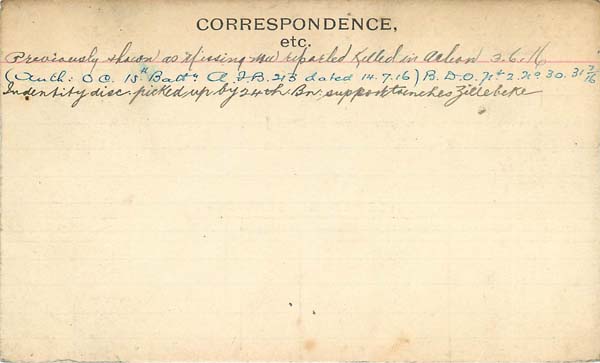 CORRESPONDENCE,
etc.
Previously shown as Missing now reported Killed in Action 3.6.16
(Auth: O C. 15th Battn A.F.B. 213 dated 14.7.16) B.D.O. Pt 2. No 30. 31/7/16
Indentity disc. picked up by 24th. Bn. support trenches Zillebeke